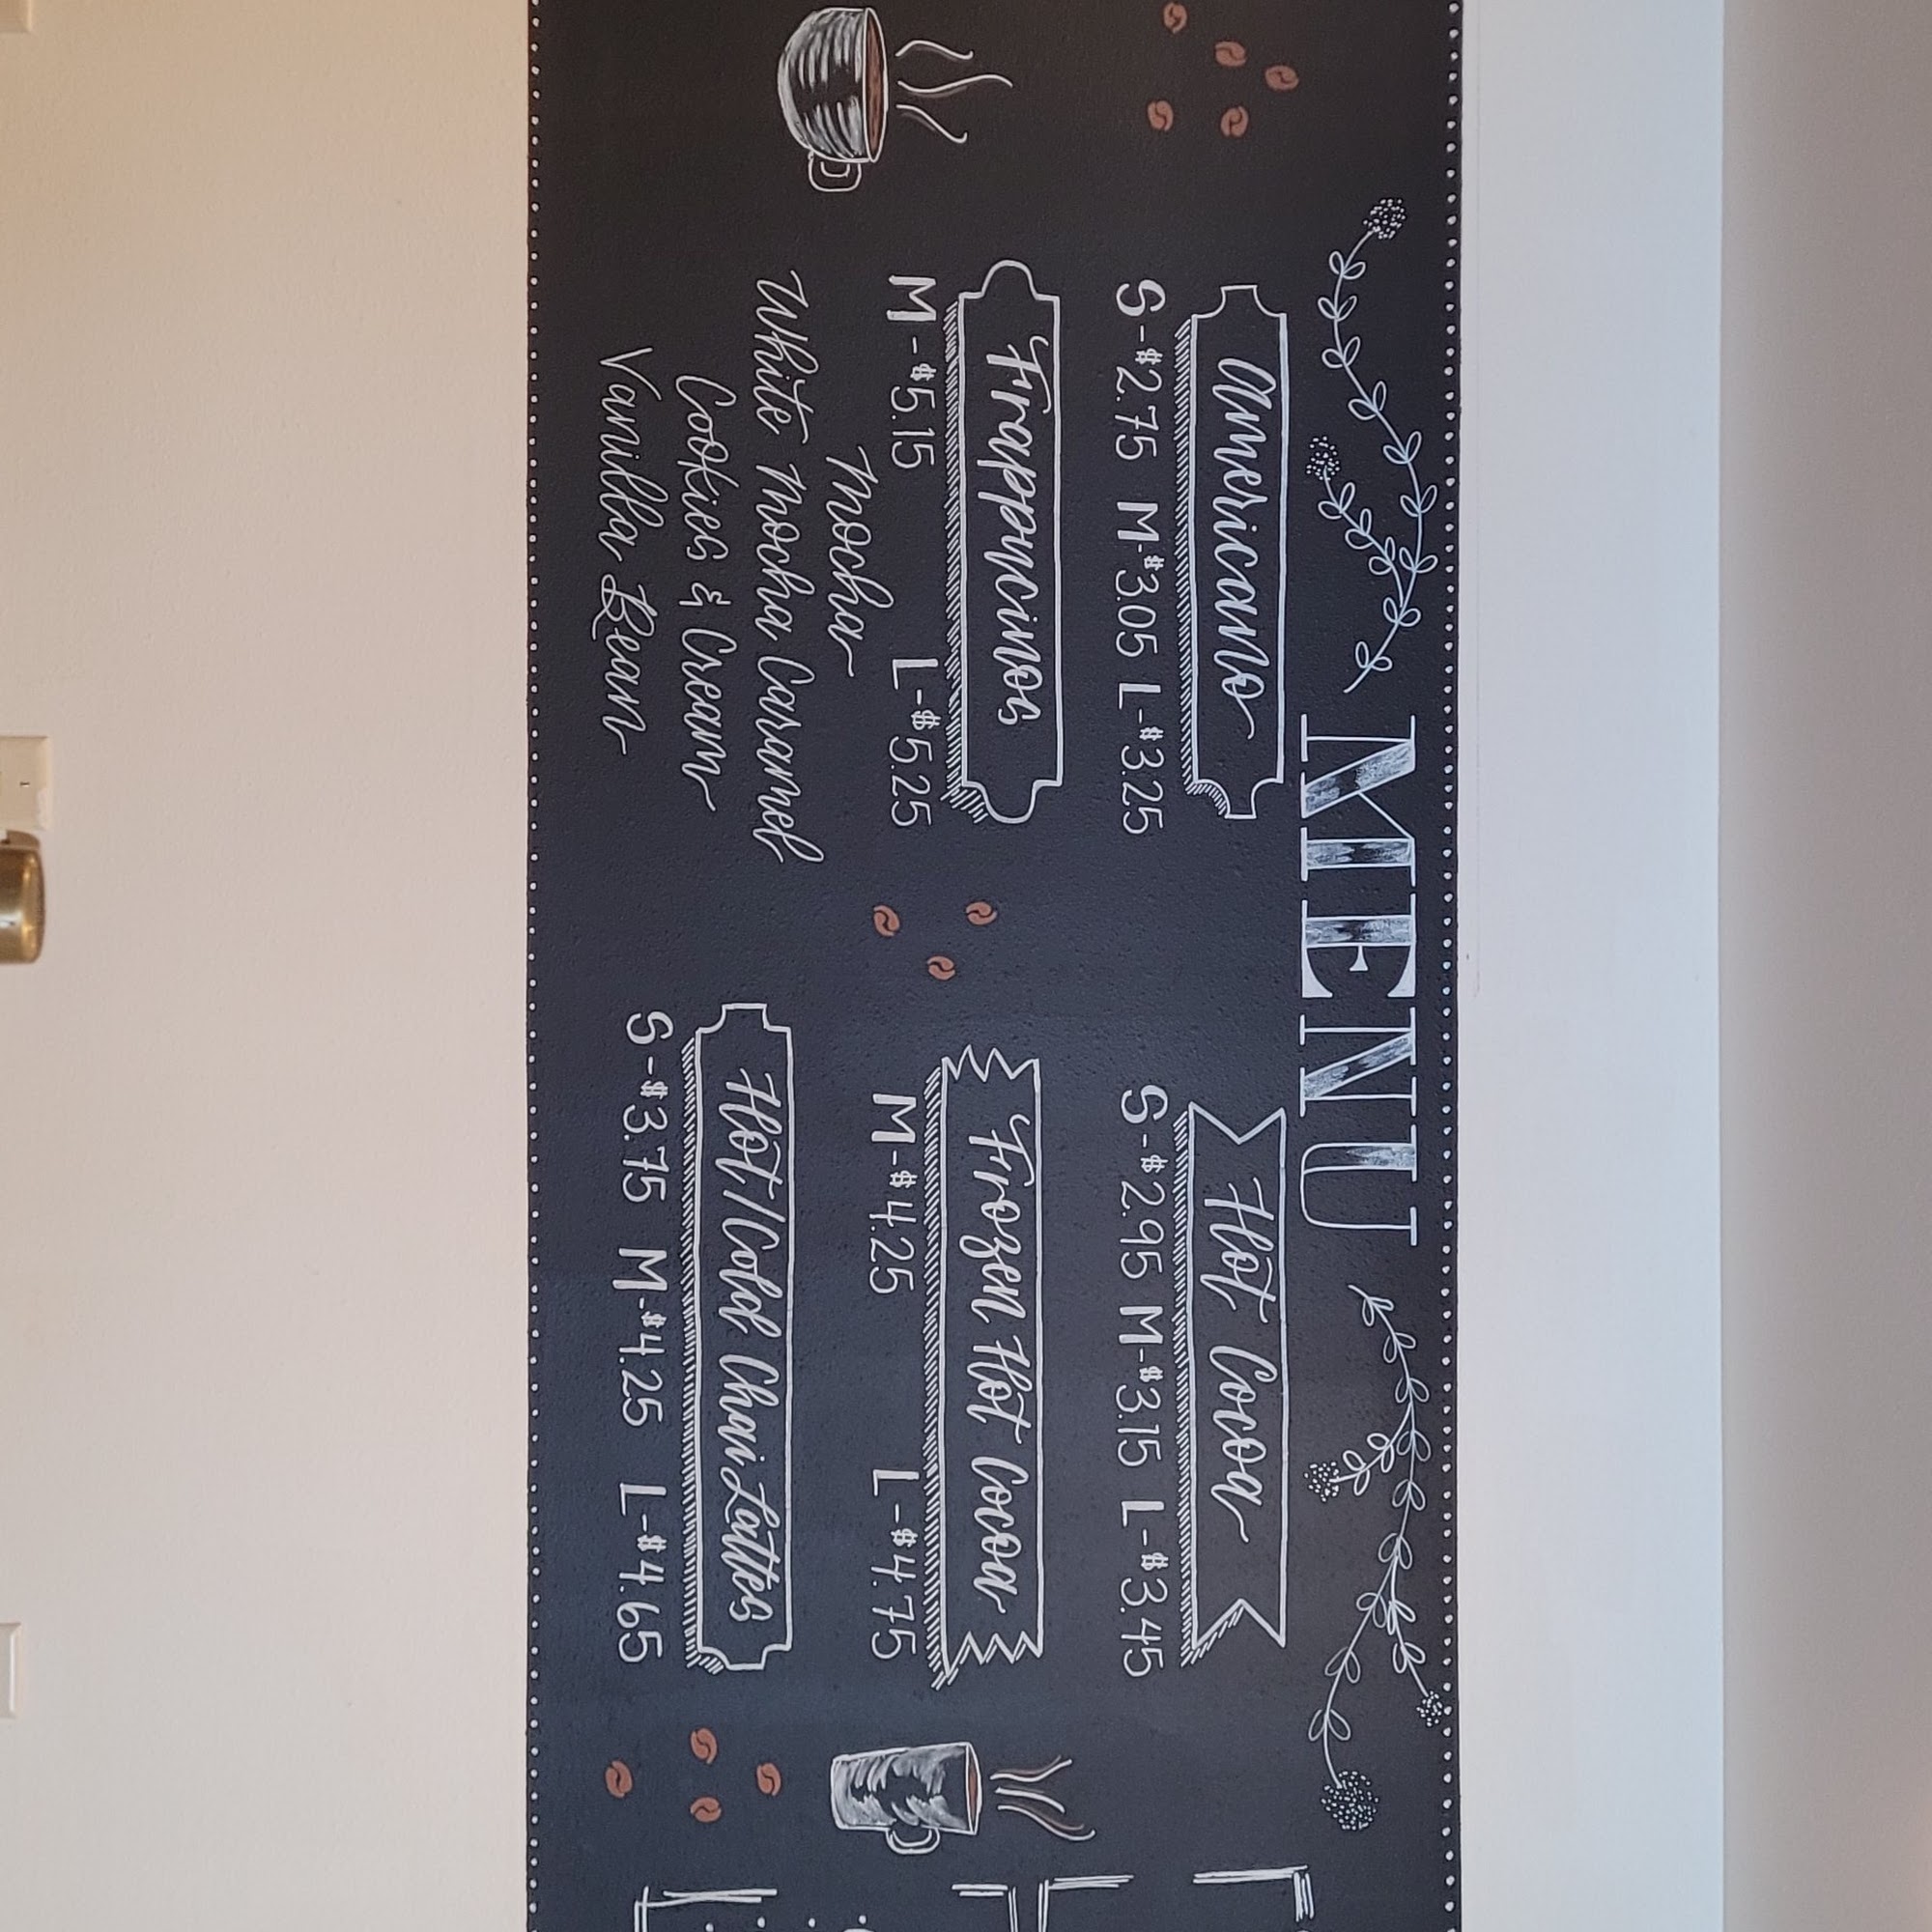 MENU
Americano
S-$2.75 M-$3.05 L-$3.25
Frappucinos
M-$5.15 L-$5.25
Mocha
White Mocha Caramel
Cookies & Cream
Vanilla Bean
Hot Cocoa
S-$2.95 M-$3.15 L-$3.45
Frozen Hot Cocoa
M-$4.25 L-$4.75
Hot/Cold Chai Lattes
S-$3.75 M-$4.25 L-$4.65